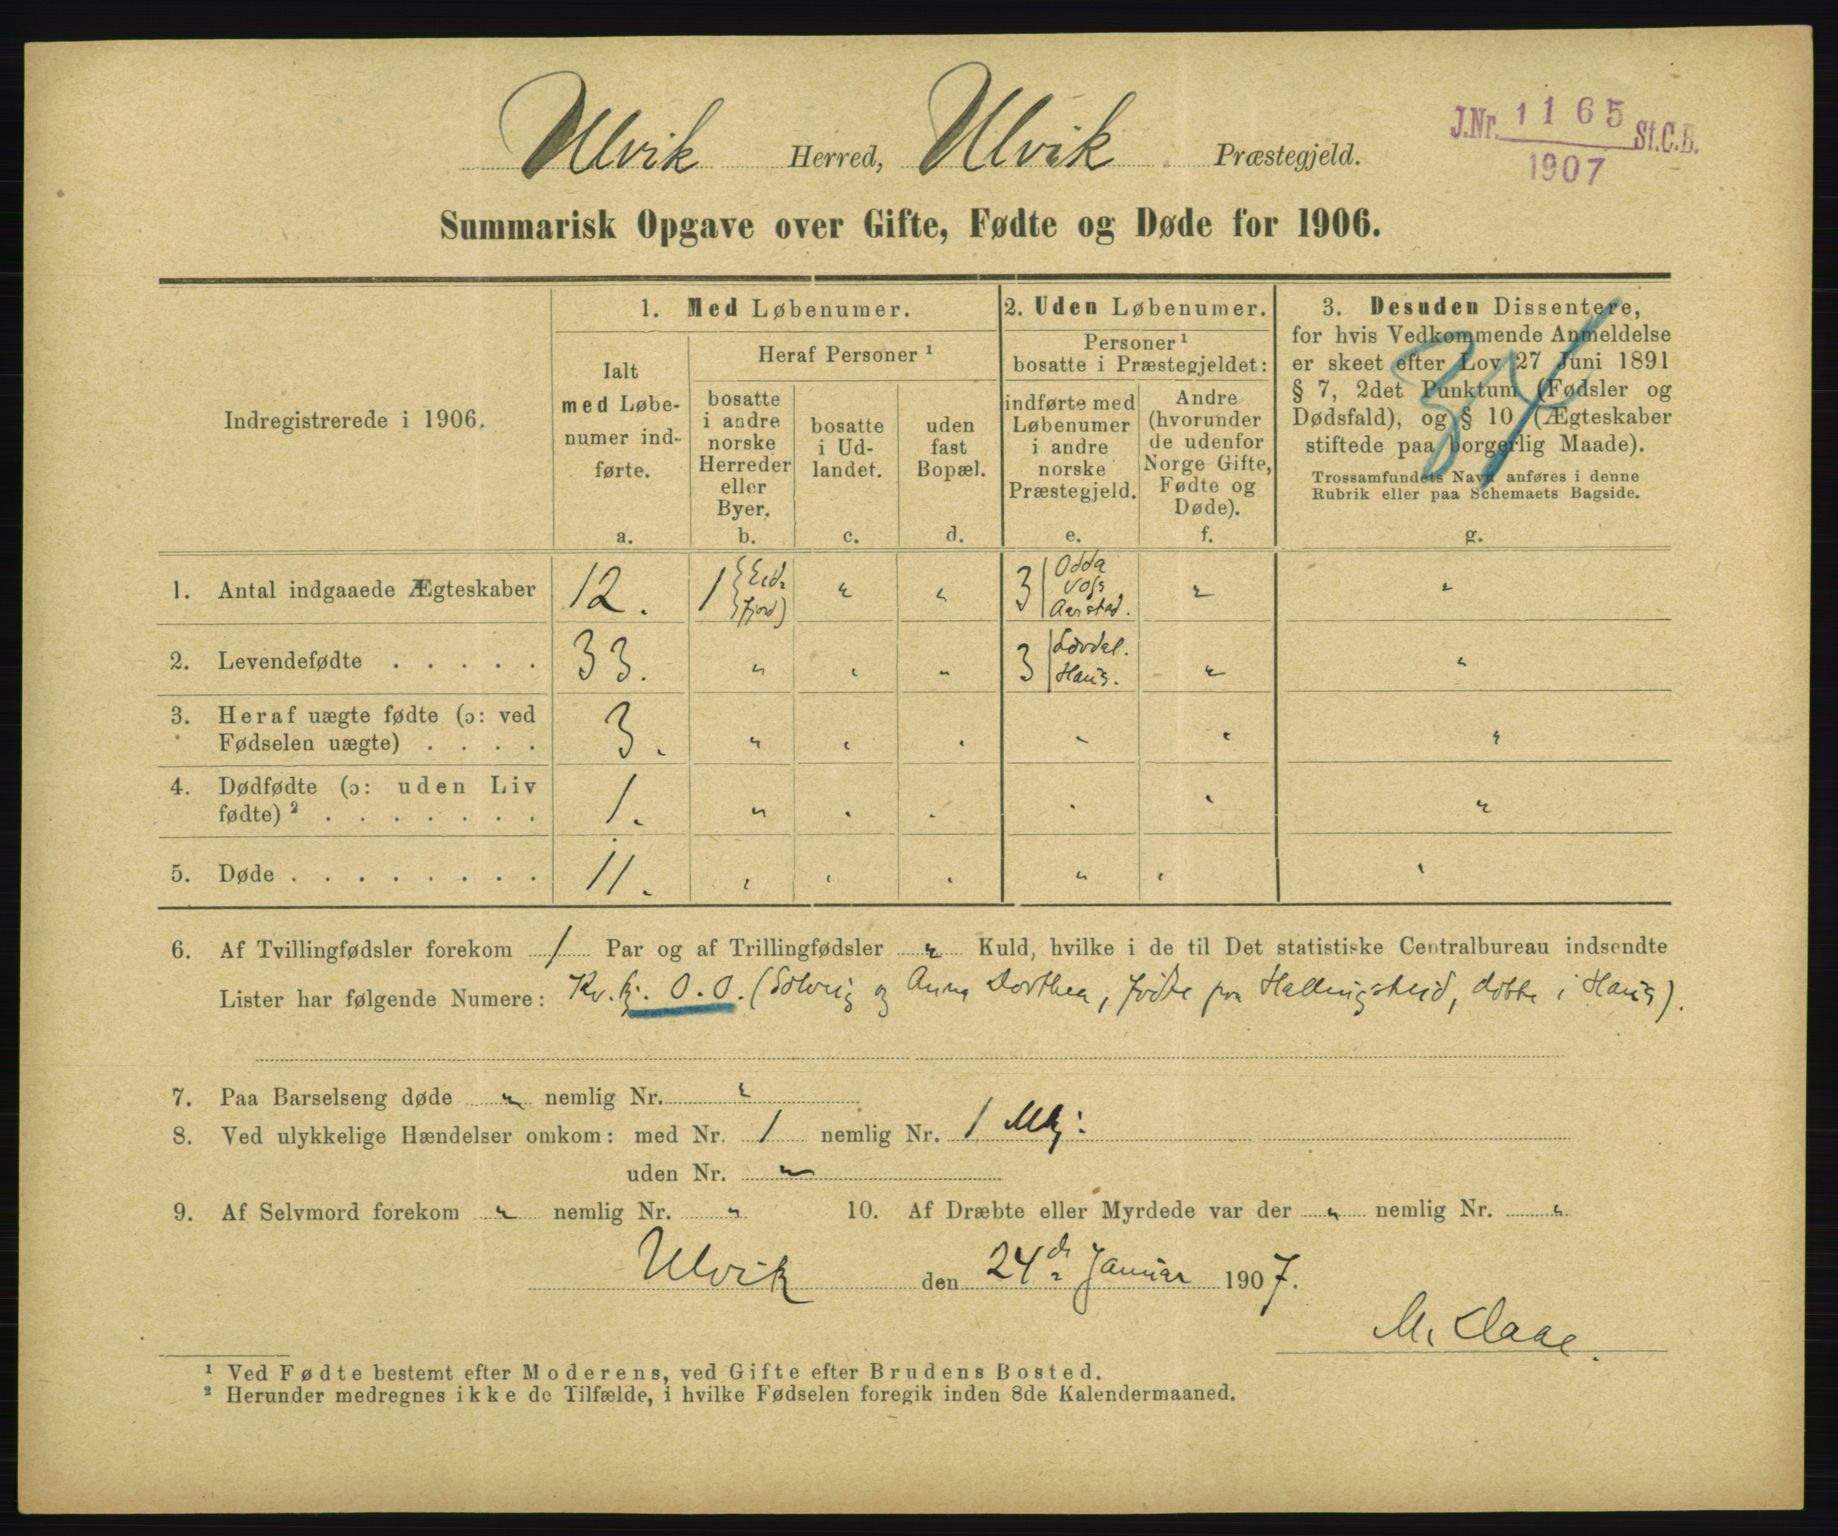 Ulvik Herred, Ulvik Præstegjeld.
J.Nr. 1165 St.C.B.
1907
Summarisk Opgave over Gifte, Fødte og Døde for 1906.
Indregistrerede i 1906.
1. Med Løbenumer.
Ialt
med Løbe-
numer ind-
førte.
a.
Heraf Personer ¹
bosatte
i andre
norske
Herreder
eller
Byer.
b.
bosatte
i Ud-
landet.
c.
uden
fast
Bopæl.
d.
2. Uden Løbenumer.
Personer ¹
bosatte i Præstegjeldet:
indførte med
Løbenumer
i andre
norske
Præstegjeld.
e.
Andre
(hvorunder
de udenfor
Norge Gifte,
Fødte og
Døde).
f.
3. Desuden Dissentere,
for hvis Vedkommende Anmeldelse
er skeet efter Lov 27 Juni 1891
§ 7, 2det Punktum (Fødsler og
Dødsfald), og § 10 (Ægteskaber
stiftede paa borgerlig Maade).
Trossamfundets Navn anføres i denne
Rubrik eller paa Schemaets Bagside.
g.
1. Antal indgaaede Ægteskaber 12. 1 (Eid-fjord) " " 3 Odda Voss Aarstad. " "
2. Levendefødte . . . . . 33. " " " 3 Haus. " "
3. Heraf uægte fødte (ɔ: ved
Fødselen uægte) . . . . 3. " " " " " "
4. Dødfødte (ɔ: uden Liv
fødte) ² . . . . . . . 1. " " " " " "
5. Døde . . . . . . . . 11. " " " " " "
6. Af Tvillingfødsler forekom 1 Par og af Trillingfødsler " Kuld, hvilke i de til Det statistiske Centralbureau indsendte
Lister har følgende Numere: Kv. kj. 0.0. (Solveig og Anna Dorthea, fødte paa Hallingskeid, døbte i Haus).
7. Paa Barselseng døde " nemlig Nr. "
8. Ved ulykkelige Hændelser omkom: med Nr. 1 nemlig Nr. 1 Mkj.
uden Nr. "
9. Af Selvmord forekom " nemlig Nr. " 10. Af Dræbte eller Myrdede var der " nemlig Nr. "
Ulvik den 24de Januar 1907.
M. Claae.
¹ Ved Fødte bestemt efter Moderens, ved Gifte efter Brudens Bosted.
² Herunder medregnes ikke de Tilfælde, i hvilke Fødselen foregik inden 8de Kalendermaaned.